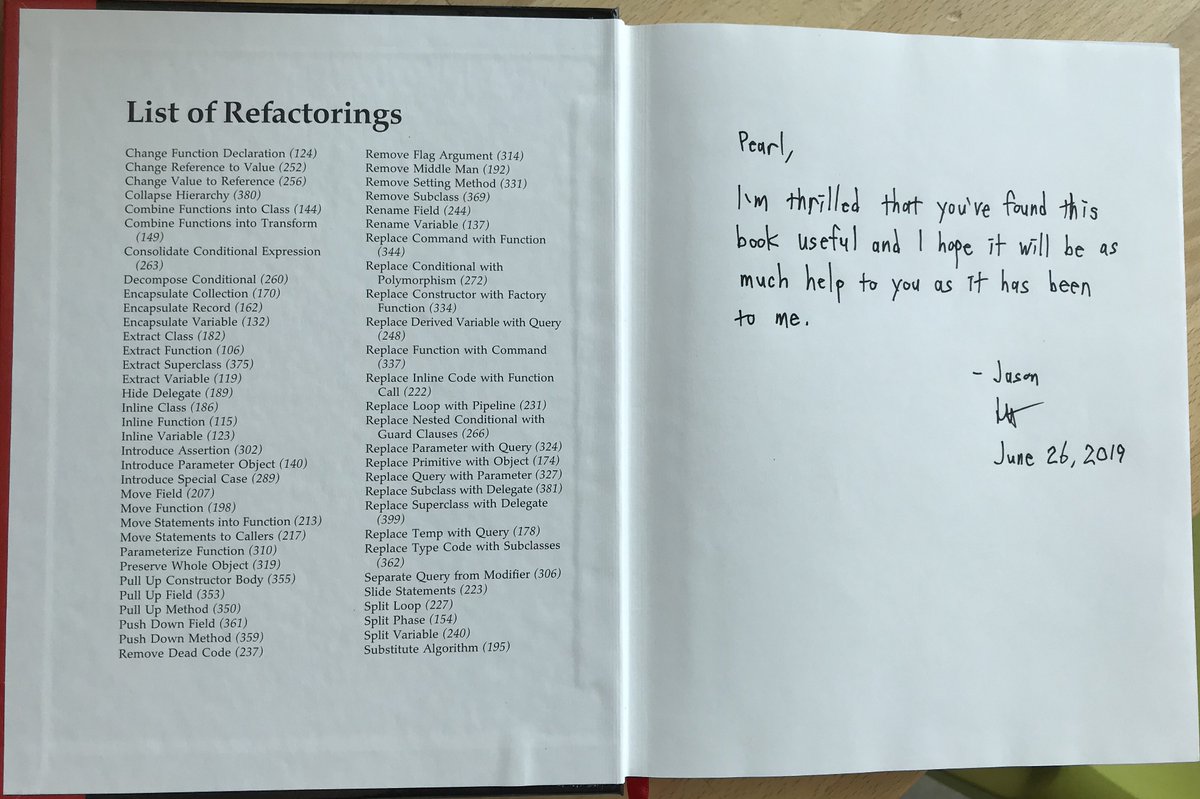 List of Refactorings
Change Function Declaration (124)
Change Reference to Value (252)
Change Value to Reference (256)
Collapse Hierarchy (380)
Combine Functions into Class (144)
Combine Functions into Transform
(149)
Consolidate Conditional Expression
(263)
Decompose Conditional (260)
Encapsulate Collection (170)
Encapsulate Record (162)
Encapsulate Variable (132)
Extract Class (182)
Extract Function (106)
Extract Superclass (375)
Extract Variable (119)
Hide Delegate (189)
Inline Class (186)
Inline Function (115)
Inline Variable (123)
Introduce Assertion (302)
Introduce Parameter Object (140)
Introduce Special Case (289)
Move Field (207)
Move Function (198)
Move Statements into Function (213)
Move Statements to Callers (217)
Parameterize Function (310)
Preserve Whole Object (319)
Pull Up Constructor Body (355)
Pull Up Field (353)
Pull Up Method (350)
Push Down Field (361)
Push Down Method (359)
Remove Dead Code (237)
Remove Flag Argument (314)
Remove Middle Man (192)
Remove Setting Method (331)
Remove Subclass (369)
Rename Field (244)
Rename Variable (137)
Replace Command with Function
(344)
Replace Conditional with
Polymorphism (272)
Replace Constructor with Factory
Function (334)
Replace Derived Variable with Query
(248)
Replace Function with Command
(337)
Replace Inline Code with Function
Call (222)
Replace Loop with Pipeline (231)
Replace Nested Conditional with
Guard Clauses (266)
Replace Parameter with Query (324)
Replace Primitive with Object (174)
Replace Query with Parameter (327)
Replace Subclass with Delegate (381)
Replace Superclass with Delegate
(399)
Replace Temp with Query (178)
Replace Type Code with Subclasses
(362)
Separate Query from Modifier (306)
Slide Statements (223)
Split Loop (227)
Split Phase (154)
Split Variable (240)
Substitute Algorithm (195)
Pearl,
I'm thrilled that you've found this
book useful and I hope it will be as
much help to you as it has been
to me.
- Jason
June 26, 2019